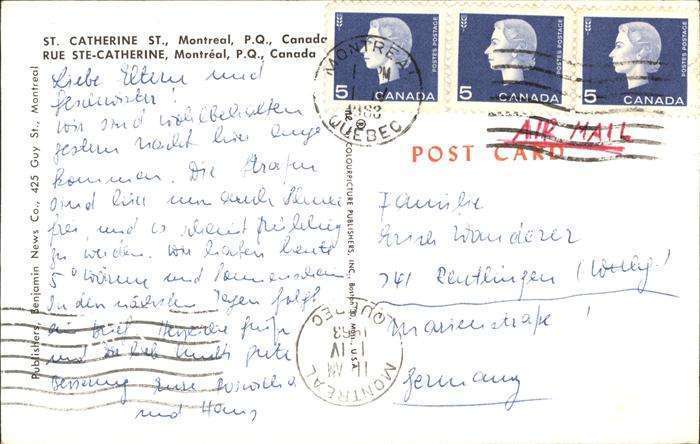 ST. CATHERINE ST., Montreal, P.Q., Canada
RUE STE-CATHERINE, Montréal, P.Q., Canada
Liebe Eltern und
Geschwister!
Wir sind wohlbehalten
gestern Nacht hier ange
kommen. Die Straßen
sind hier nun auch Schnee
frei und es scheint Frühling
zu werden. Wir hatten heute
5° Wärme und Sonnenschein
In den nächsten Tagen folgt
ein Brief. Herzliche Grüße
und gute
Besserung Eure
und Hans
Publishers, Benjamin News Co., 425 Guy St., Montreal
COLOURPICTURE PUBLISHERS, INC., Boston 30, Mass., U.S.A.
5 CANADA
POSTES POSTAGE
5 CANADA
POSTES POSTAGE
5 CANADA
POSTES POSTAGE
MONTREAL
PM
1963
QUEBEC
AIR MAIL
POST CARD
Familie
Erich Wanderer
741 Reutlingen
Marienstraße
Germany
MONTREAL
11 AM
1 IV
1963
QUEBEC